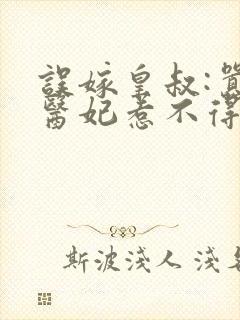 誤嫁皇叔:
醫妃惹不得
斯波淺人 淺